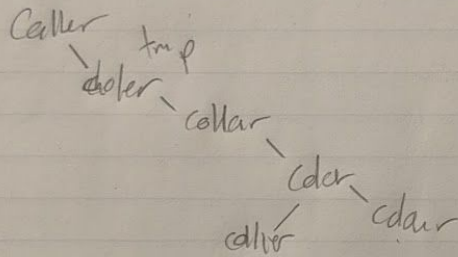 Caller
tmp
choler
collar
Color
collier
Colour